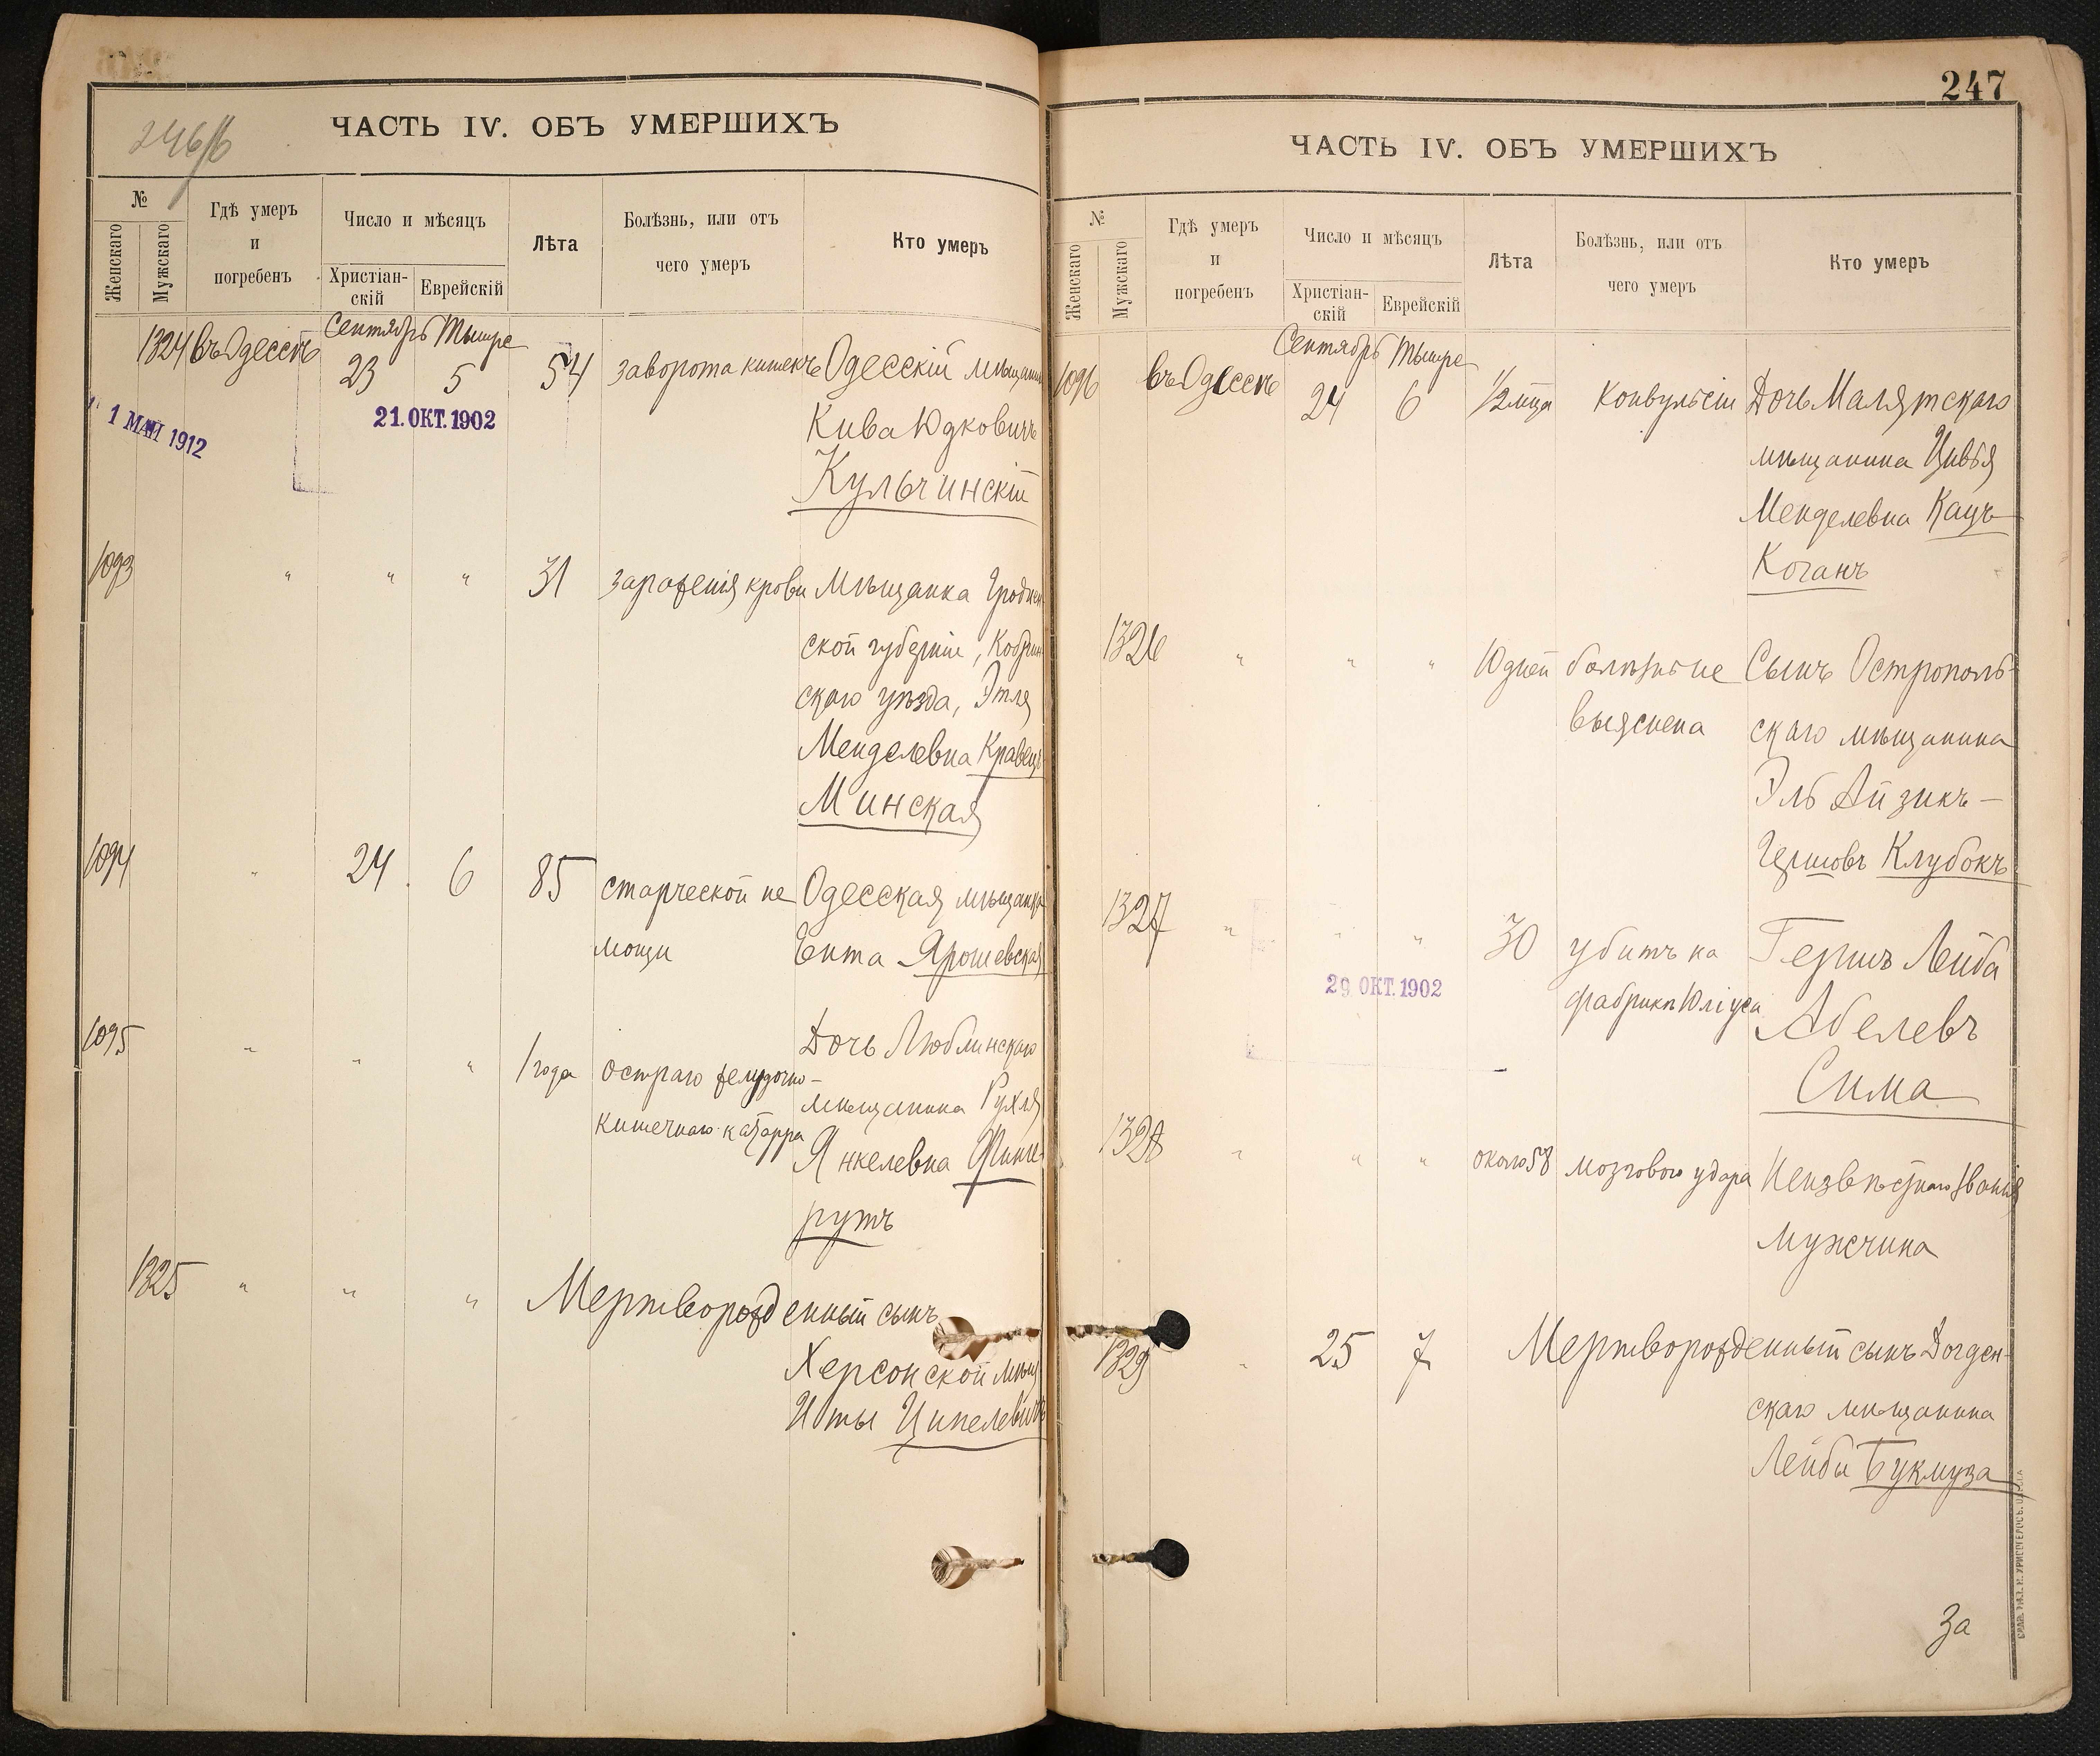 246/б
ЧАСТЬ IV. ОБЪ УМЕРШИХЪ
№
Женскаго
Мужскаго
Гдѣ умеръ
и
погребенъ
Число и мѣсяцъ
Христіан-
скій
Еврейскій
Лѣта
Болѣзнь, или отъ
чего умеръ
Кто умеръ
Сентябрь Тышре
1324 въ Одессѣ 23 5 54 заворота кишекъ Одесскій мѣщанин
Кива Юдковичъ
Кульчинскій
1 МАЙ 1912
21. ОКТ. 1902
1093 " " " 31 зараженія крови Мѣщанка Гроднен
ской губерніи, Кобрин
скаго уѣзда, Этля
Менделевна Кравецъ
Минская
1094 " 24 6 85 старческой не Одесская мѣщанка
мощи Ента Ярошевская
1095 " " " 1 года остраго желудочно- Дочь Люблинскаго
кишечнаго катарра мѣщанина Рухля
Янкелевна Финке-
рутъ
1325 " " " Мертворожденный сынъ
Херсонской мѣщ
Иты Ципелевичъ
247
ЧАСТЬ IV. ОБЪ УМЕРШИХЪ
№
Женскаго
Мужскаго
Гдѣ умеръ
и
погребенъ
Число и мѣсяцъ
Христіан-
скій
Еврейскій
Лѣта
Болѣзнь, или отъ
чего умеръ
Кто умеръ
Сентябрь Тышре
1096 въ Одессѣ 24 6 1/2 мца Конвульсіи Дочь Малятскаго
мѣщанина Цивья
Менделевна Кацъ
Коганъ
1326 " " " 10 дней болѣзнь не СынъОстрополь-
выяснена скаго мѣщанина
Эль Айзикъ-
Гершовъ Клубокъ
1327 " " " 30 убитъ на Гершъ Лейба
фабрикѣ Юліуса Абелевъ
Сима
29. ОКТ. 1902
1328 " " " около 58 мозгового удара Неизвѣстнаго званія
мужчина
1329 " 25 7 Мертворожденный сынъ Догден-
скаго мѣщанина
Лейбы Букмуза
За